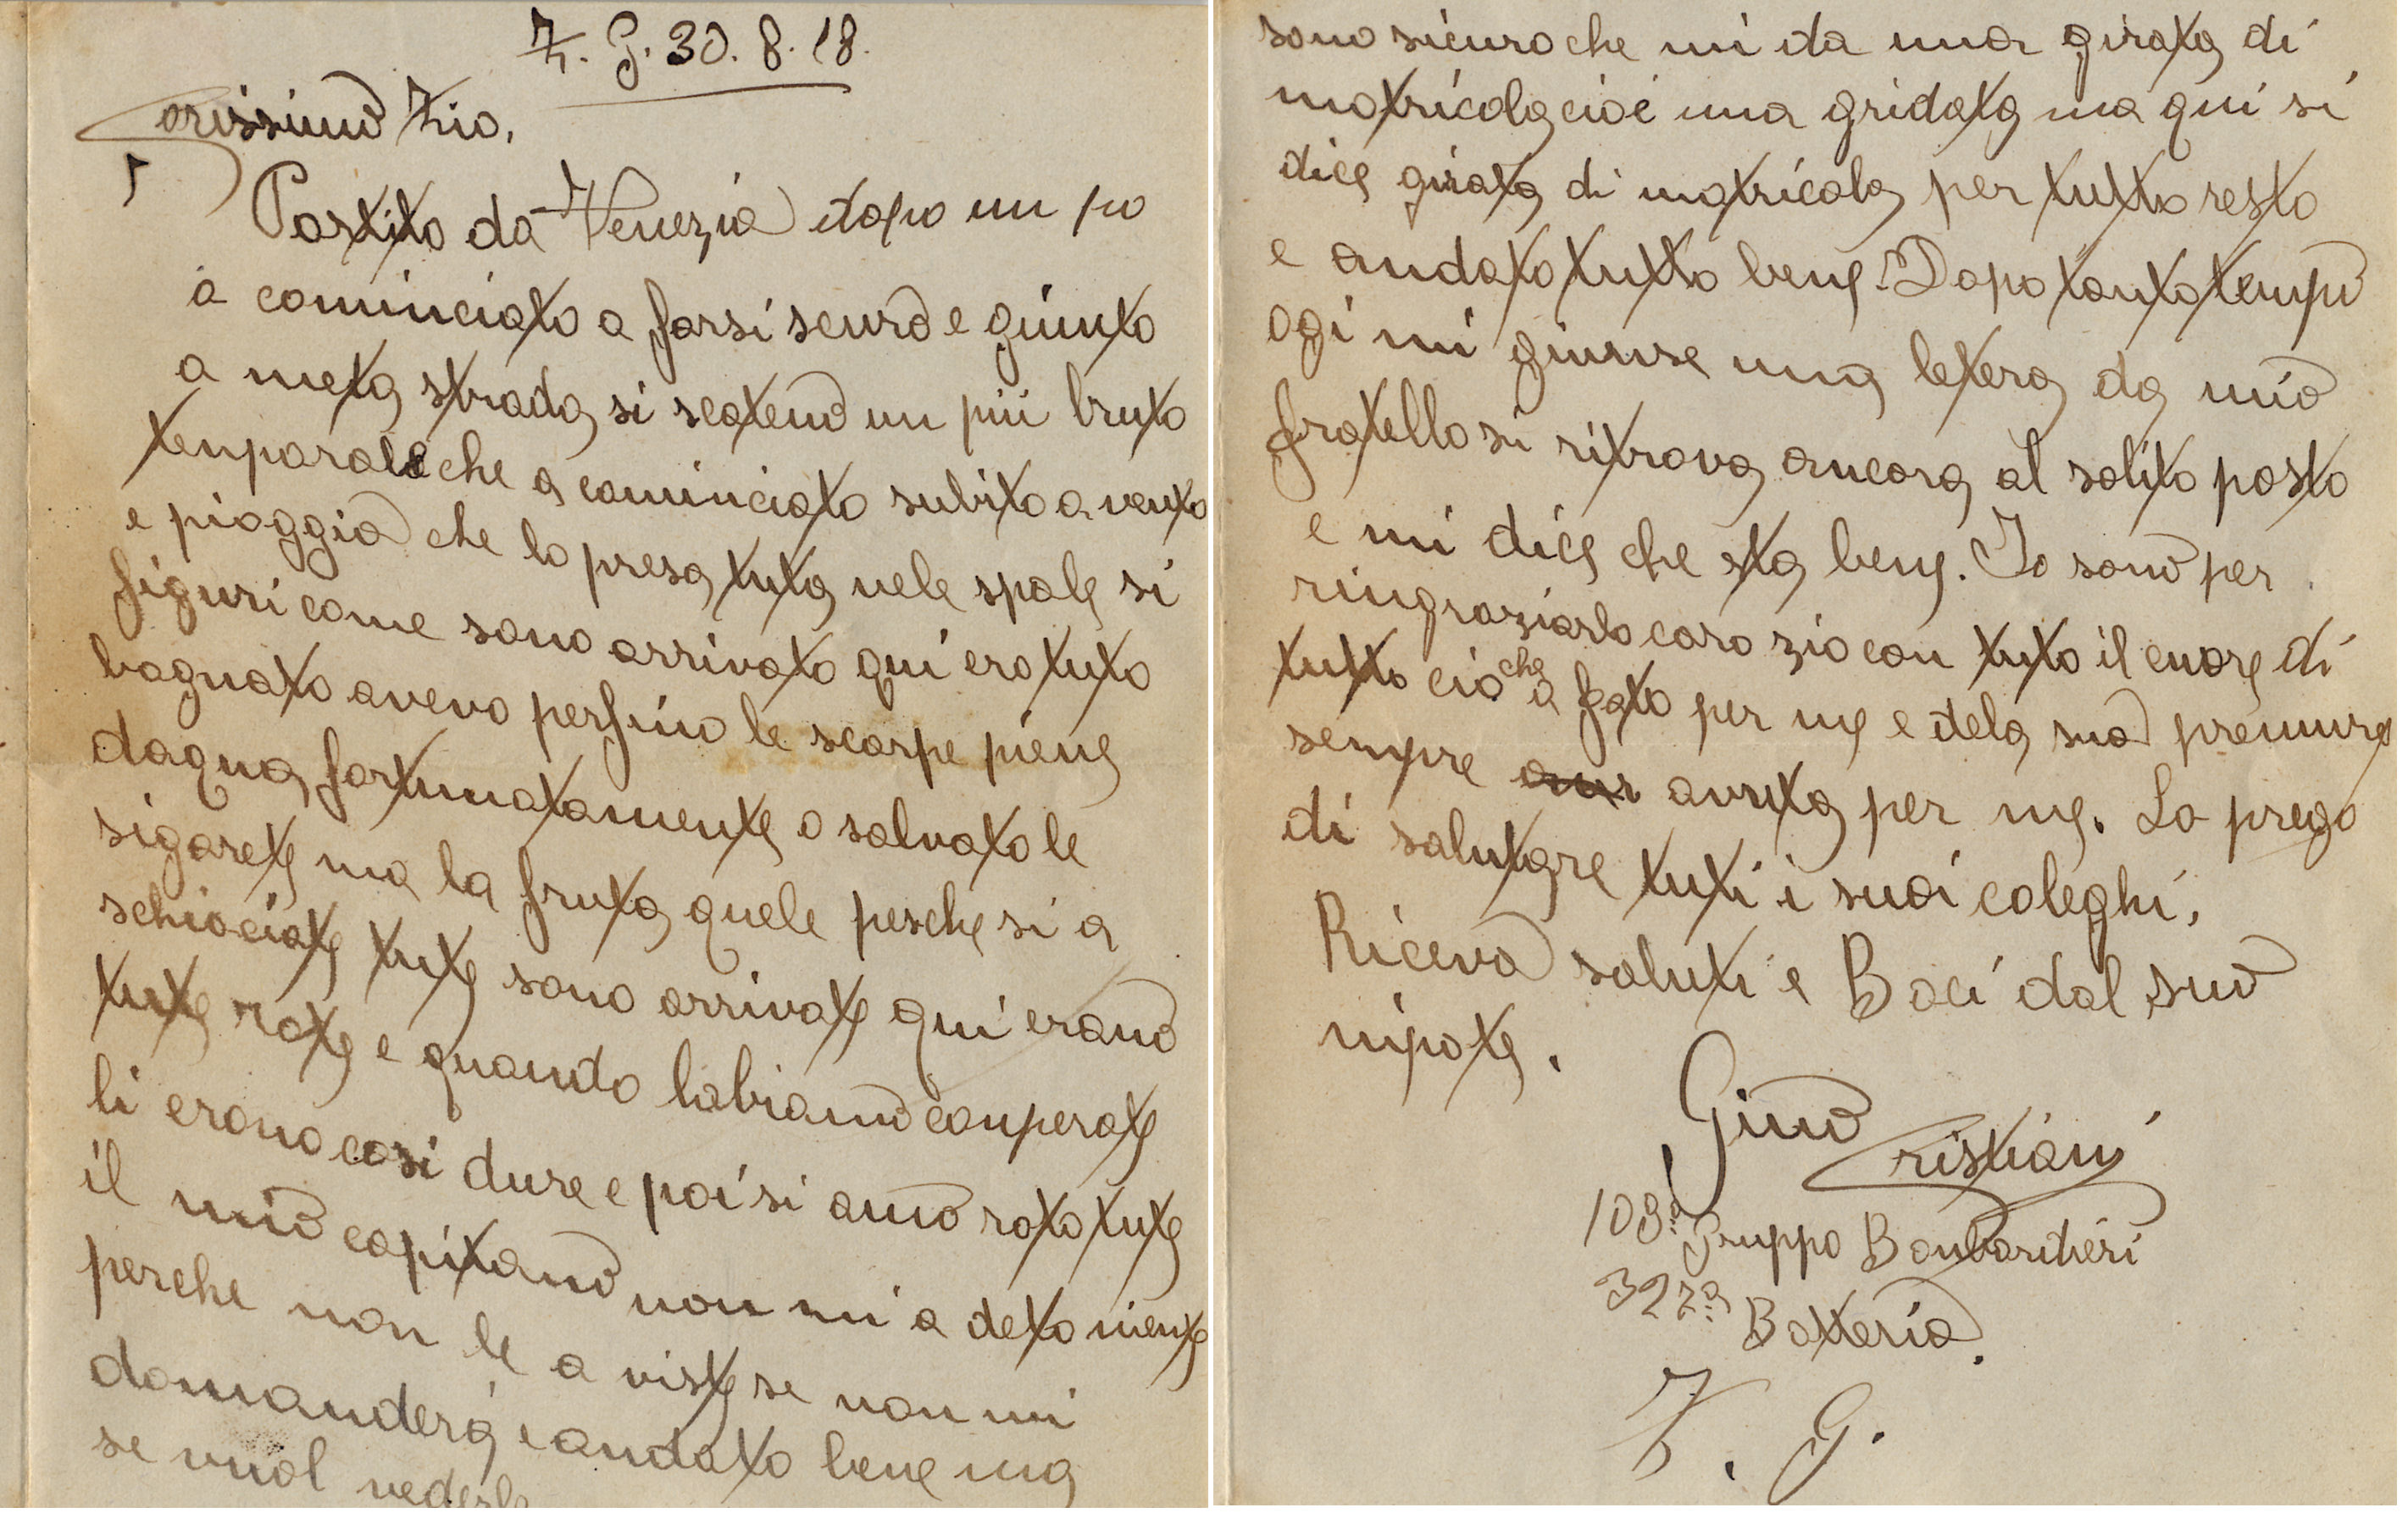 Z. G. 30. 8. 18.
Carissimo Zio,
Partito da Venezia dopo un po
a cominciato a farsi scuro e giunto
a meta strada si scatenò un più bruto
temporale che a cominciato subito a vento
e pioggia che lo presa tuta nele spale si
figuri come sono arrivato qui ero tuto
bagnato avevo perfino le scarpe piene
daqua fortunatamente o salvato le
sigarete ma la fruta quele pesche si a
schiaciate tute sono arrivate qui erano
tute rote e quando labiamo comperate
li erano cosi dure e poi si ano roto tute
il mio capitano non mi a deto niente
perche non le a viste se non mi
domanderà e andato bene ma
se vuol vederle
sono sicuro che mi da una girata di
matricola cioè una gridata ma qui si
dice girata di matricola per tutto resto
e andato tutto bene. Dopo tanto tempo
ogi mi giunse una letera da mio
fratello si ritrova ancora al solito posto
e mi dice che sta bene. Io sono per
ringraziarlo caro zio con tuto il cuore di
tutto ciò che a fato per me e dela sua premura
sempre avuta per me. Lo prego
di salutare tuti i suoi coleghi.
Riceva saluti e Baci dal suo
nipote.
Gino
Cristiani
108º Gruppo Bombardieri
327ª Batteria.
Z. G.